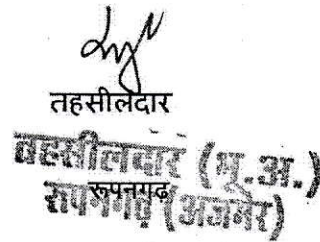 तहसीलदार
तहसीलदार (भू.अ.)
रूपनगढ
रूपनगढ़ (अजमेर)